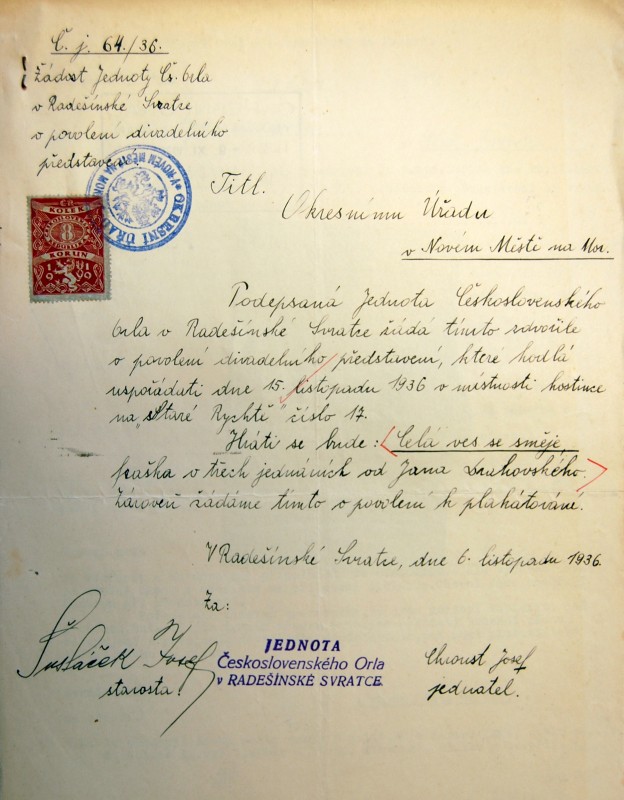 Č. j. 64./36.
Žádost Jednoty Čs. Orla
v Radešínské Svratce
o povolení divadelního
představení.
OKRESNÍ ÚŘAD V NOVÉM MĚSTĚ NA MOR
ČR
KOLEK
8
KORUN
1919
Titl.
Okresnímu Úřadu
v Novém Městě na Mor.
Podepsaná Jednota Československého
Orla v Radešínské Svratce žádá tímto zdvořile
o povolení divadelního představení, které hodlá
uspořádati dne 15. listopadu 1936 v místnosti hostince
na „Staré Rychtě" číslo 17.
Hráti se bude: Celá ves se směje,
fraška v třech jednáních od Jana
Zároveň žádáme tímto o povolení k plakátování.
V Radešínské Svratce, dne 6. listopadu 1936.
Za:
Josef
starosta.
JEDNOTA
Československého Orla
v RADEŠÍNSKÉ SVRATCE.
Chroust Josef
jednatel.